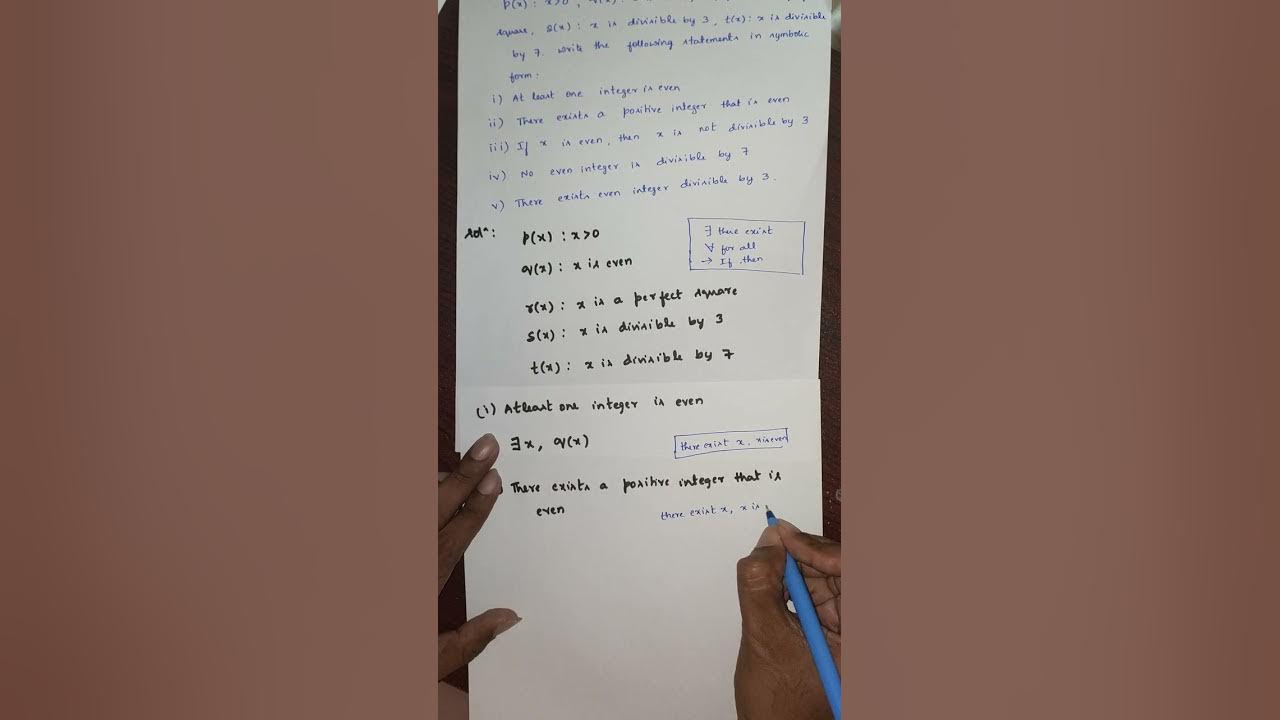 p(x) : x>0
square, s(x) : x is divisible by 3, t(x) : x is divisible
by 7. Write the following statements in symbolic
form :
i) At least one integer is even
ii) There exists a positive integer that is even
iii) If x is even, then x is not divisible by 3
iv) No even integer is divisible by 7
v) There exists even integer divisible by 3.
Solⁿ :
p(x) : x>0
∃ there exist
∀ for all
→ If then
q(x) : x is even
r(x) : x is a perfect square
s(x) : x is divisible by 3
t(x) : x is divisible by 7
(i) Atleast one integer is even
∃x, q(x)
there exist x, x is even
There exists a positive integer that is
even
there exist x, x is